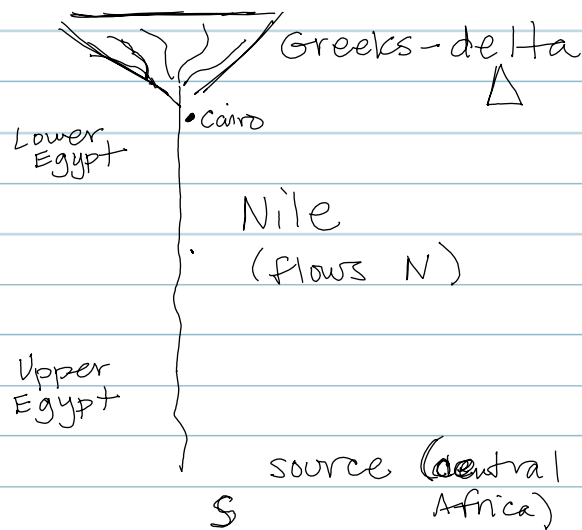 Greeks-delta
Δ
• Cairo
Lower
Egypt
Nile
(flows N)
Upper
Egypt
source (central
Africa)
S